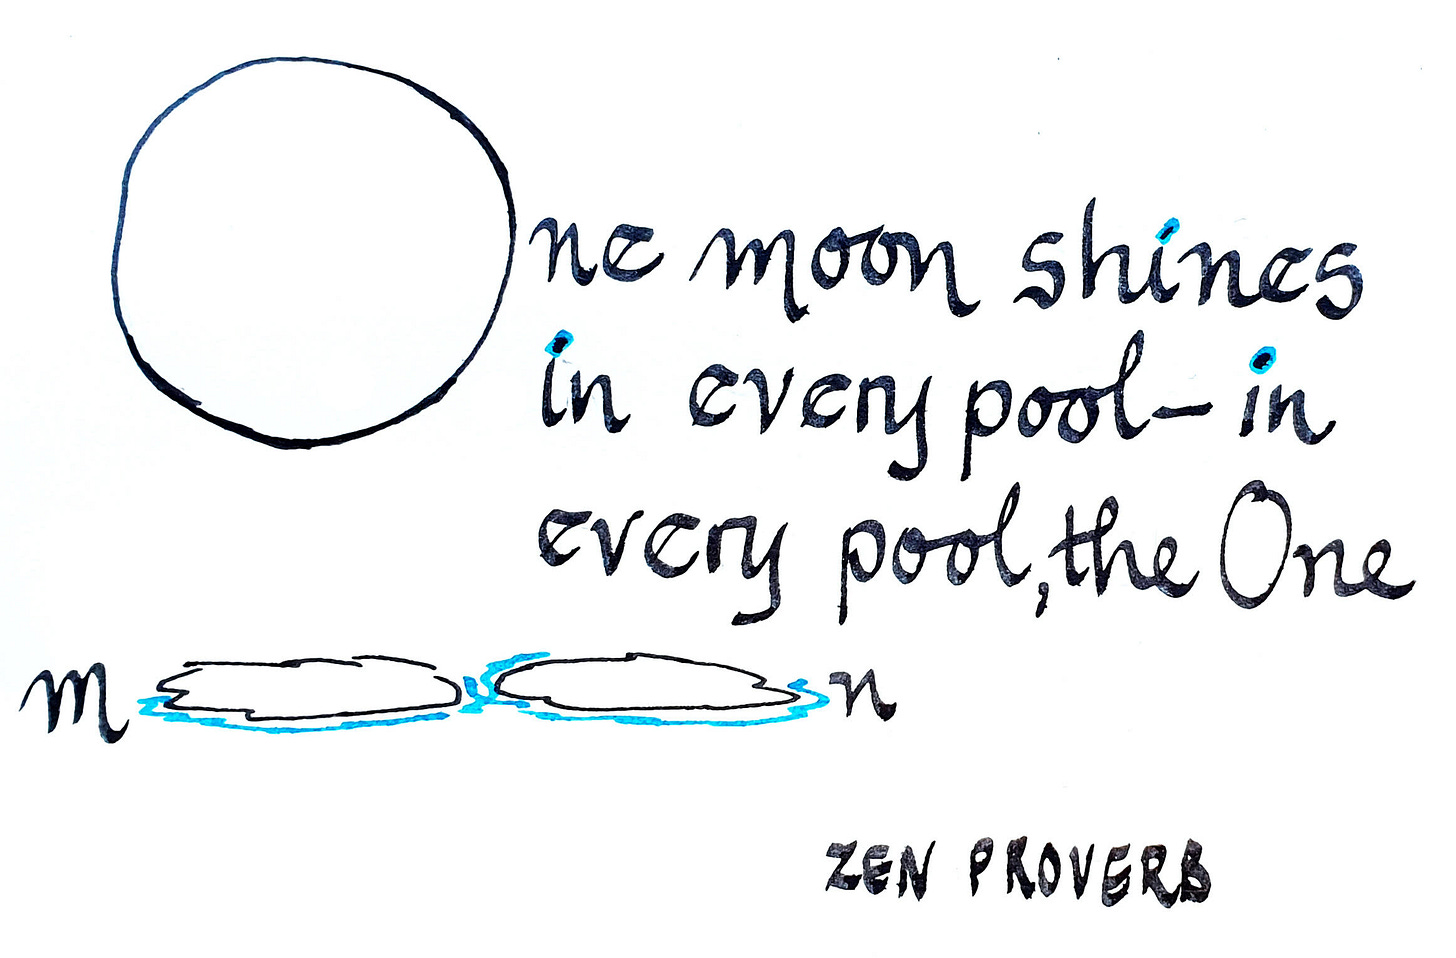 One moon shines
in every pool—in
every pool, the One
moon
ZEN PROVERB